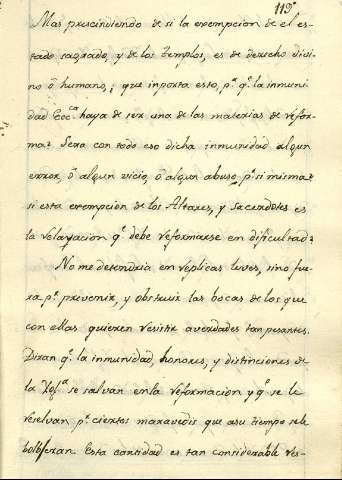 119.
Mas prescindiendo de si la exempcion de el es-
tado sagrado, y de los Templos, es de derecho divi-
no ô humano, ¿ que inporta esto, pª qᵉ la inmuni-
dad Eccᶜᵃ haya de ser una de las materias de refor-
ma? Sera con todo eso dicha inmunidad algun
error, ô algun vicio, ô algun abuso pʳ si misma?
si esta exempcion de los Altares, y Sacerdotes es
la relaxacion qᵉ debe reformarse en dificultad?
No me detendria en réplicas leves, sino fue-
ra pʳ prevenir, y obstruir las bocas de los que
con ellas quieren resistir a verdades tan pesantes.
Diran qᵉ la inmunidad, honores, y distinciones de
la Yglª se salvan en la reformacion y qᵉ se le
reselvan pʳ ciertos maravedis que a su tiempo se le
bolberan. Esta cantidad es tan considerable res-